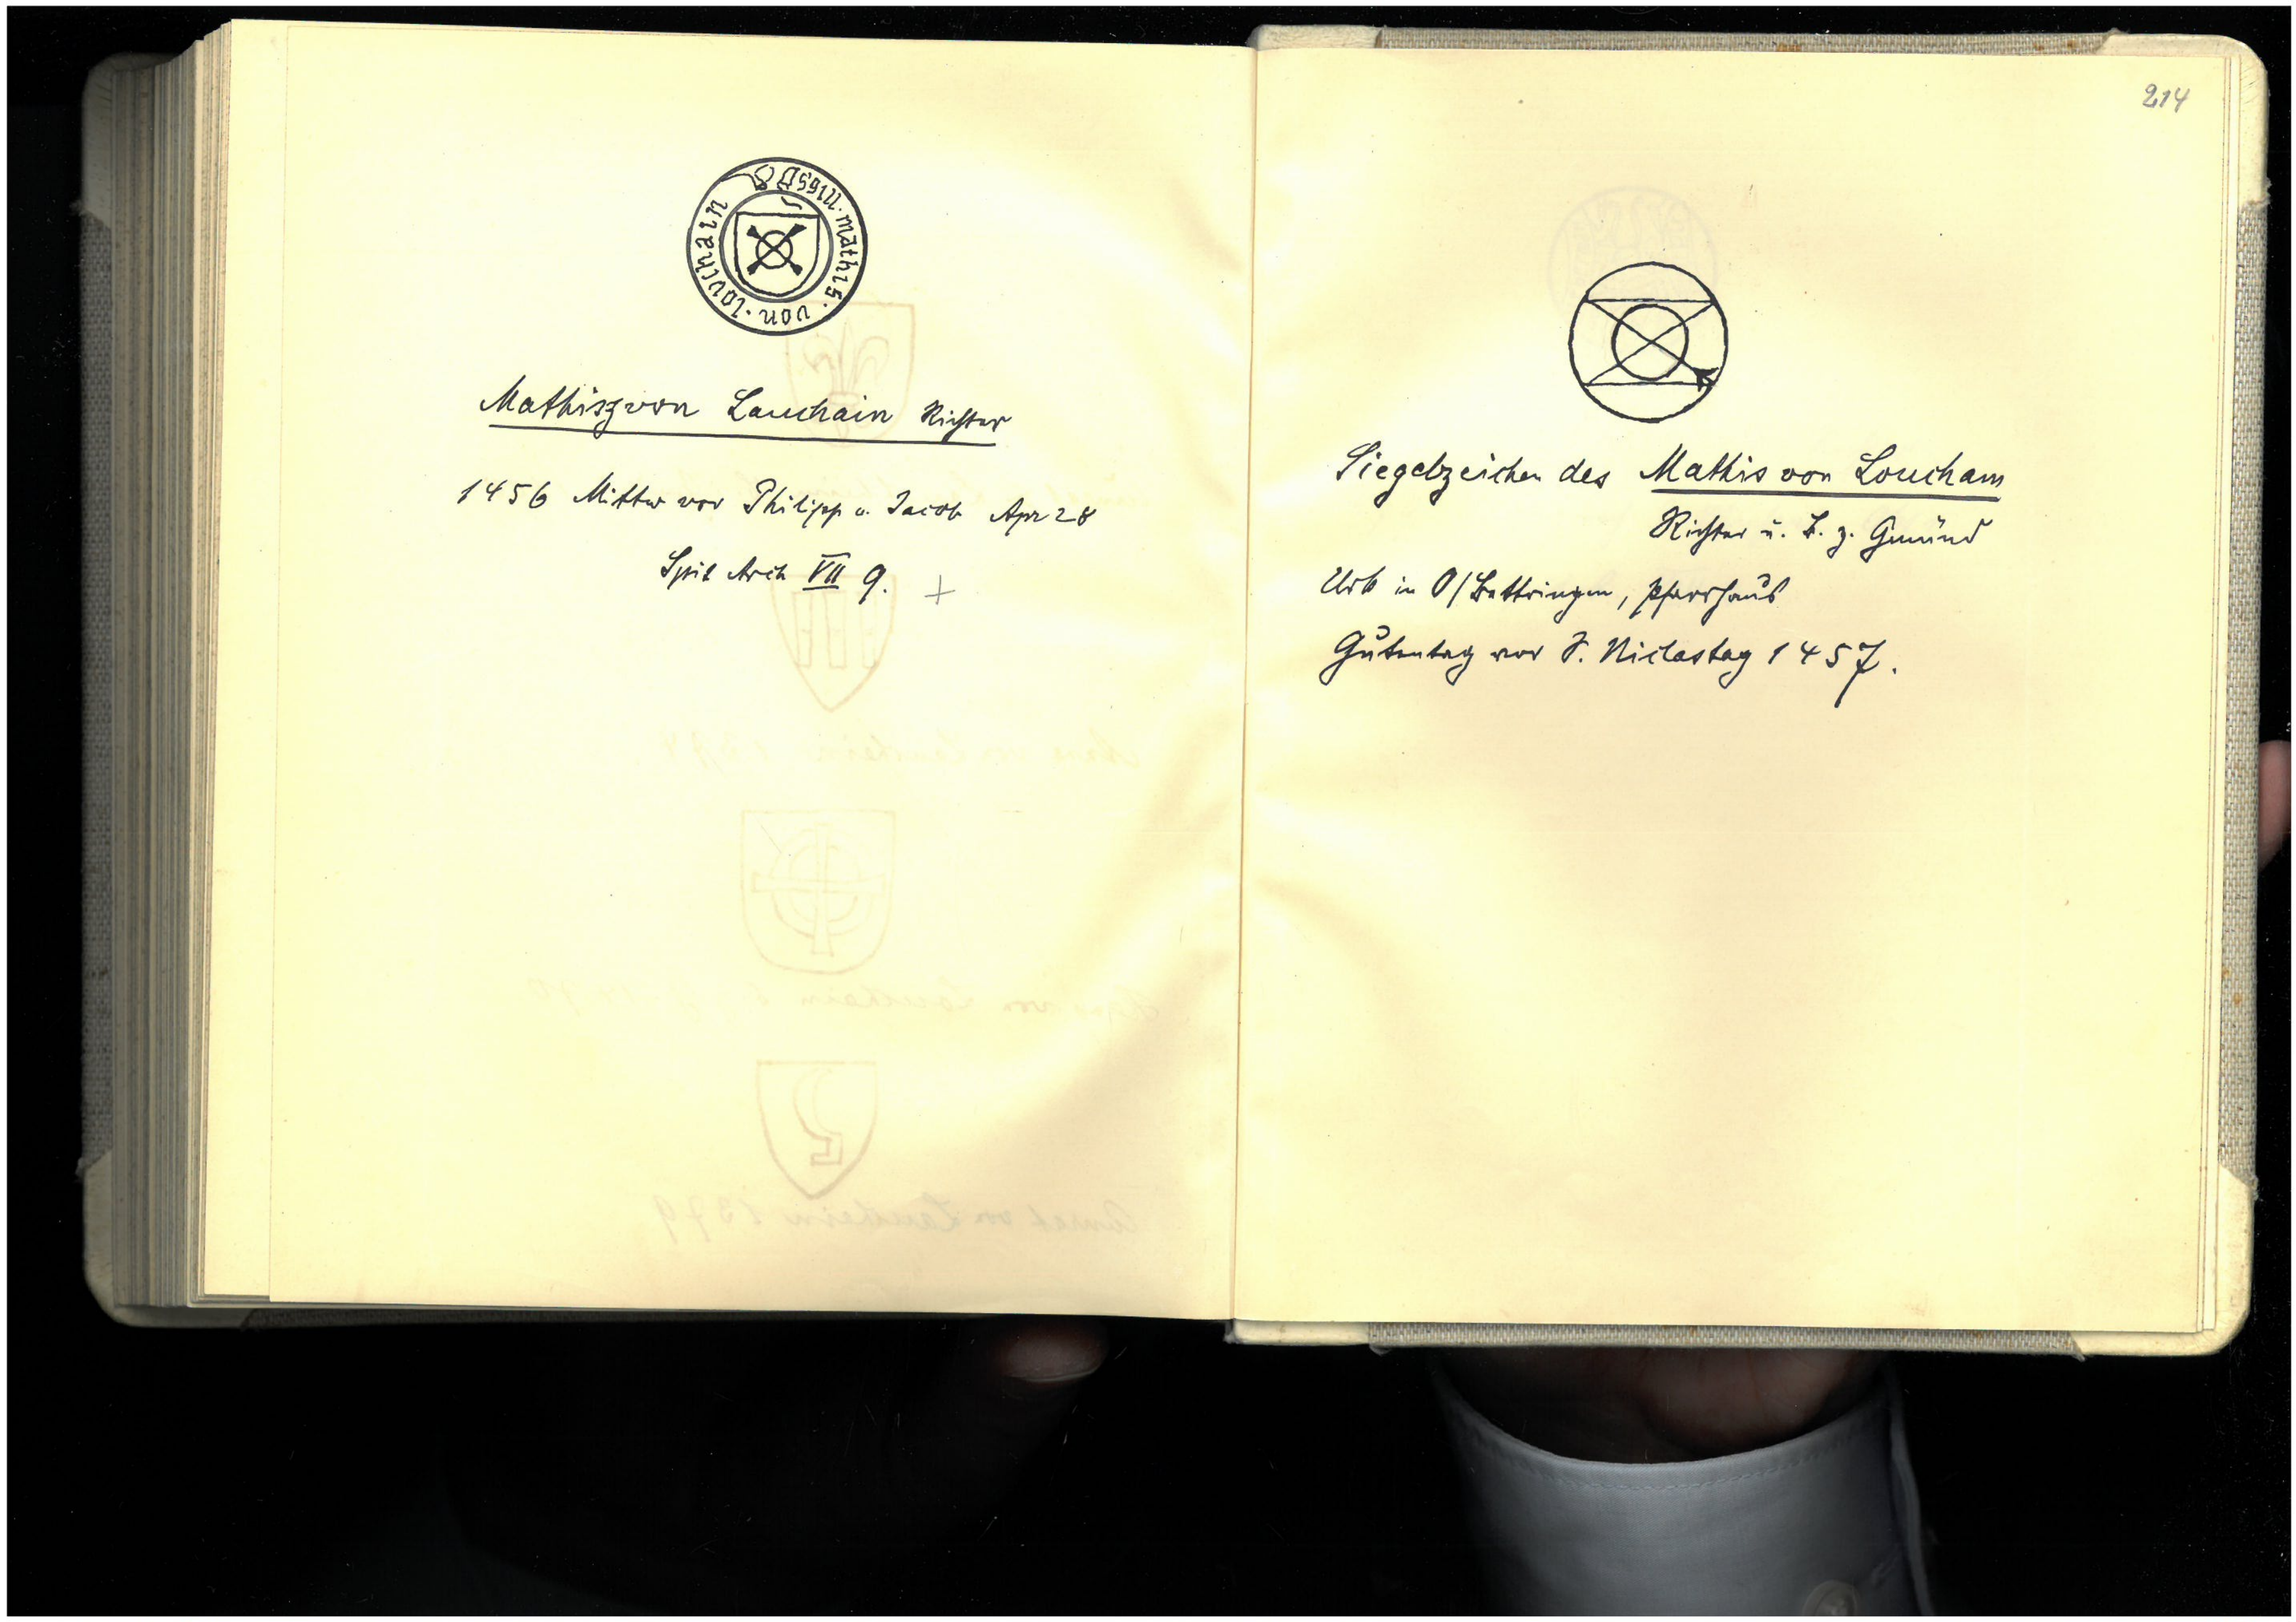 mathis · von · louchain
Mathisz von Lauchain Richter
1456 Mittw vor Philipp u. Jacob Apr 28
Spit Arch VII 9. +
214
Siegelzeichen des Mathis von Loucham
Richter u. B. z. Gmünd
Urk in O/Bettringen, Pfarrhaus
Gutentag vor S. Niclastag 1457.